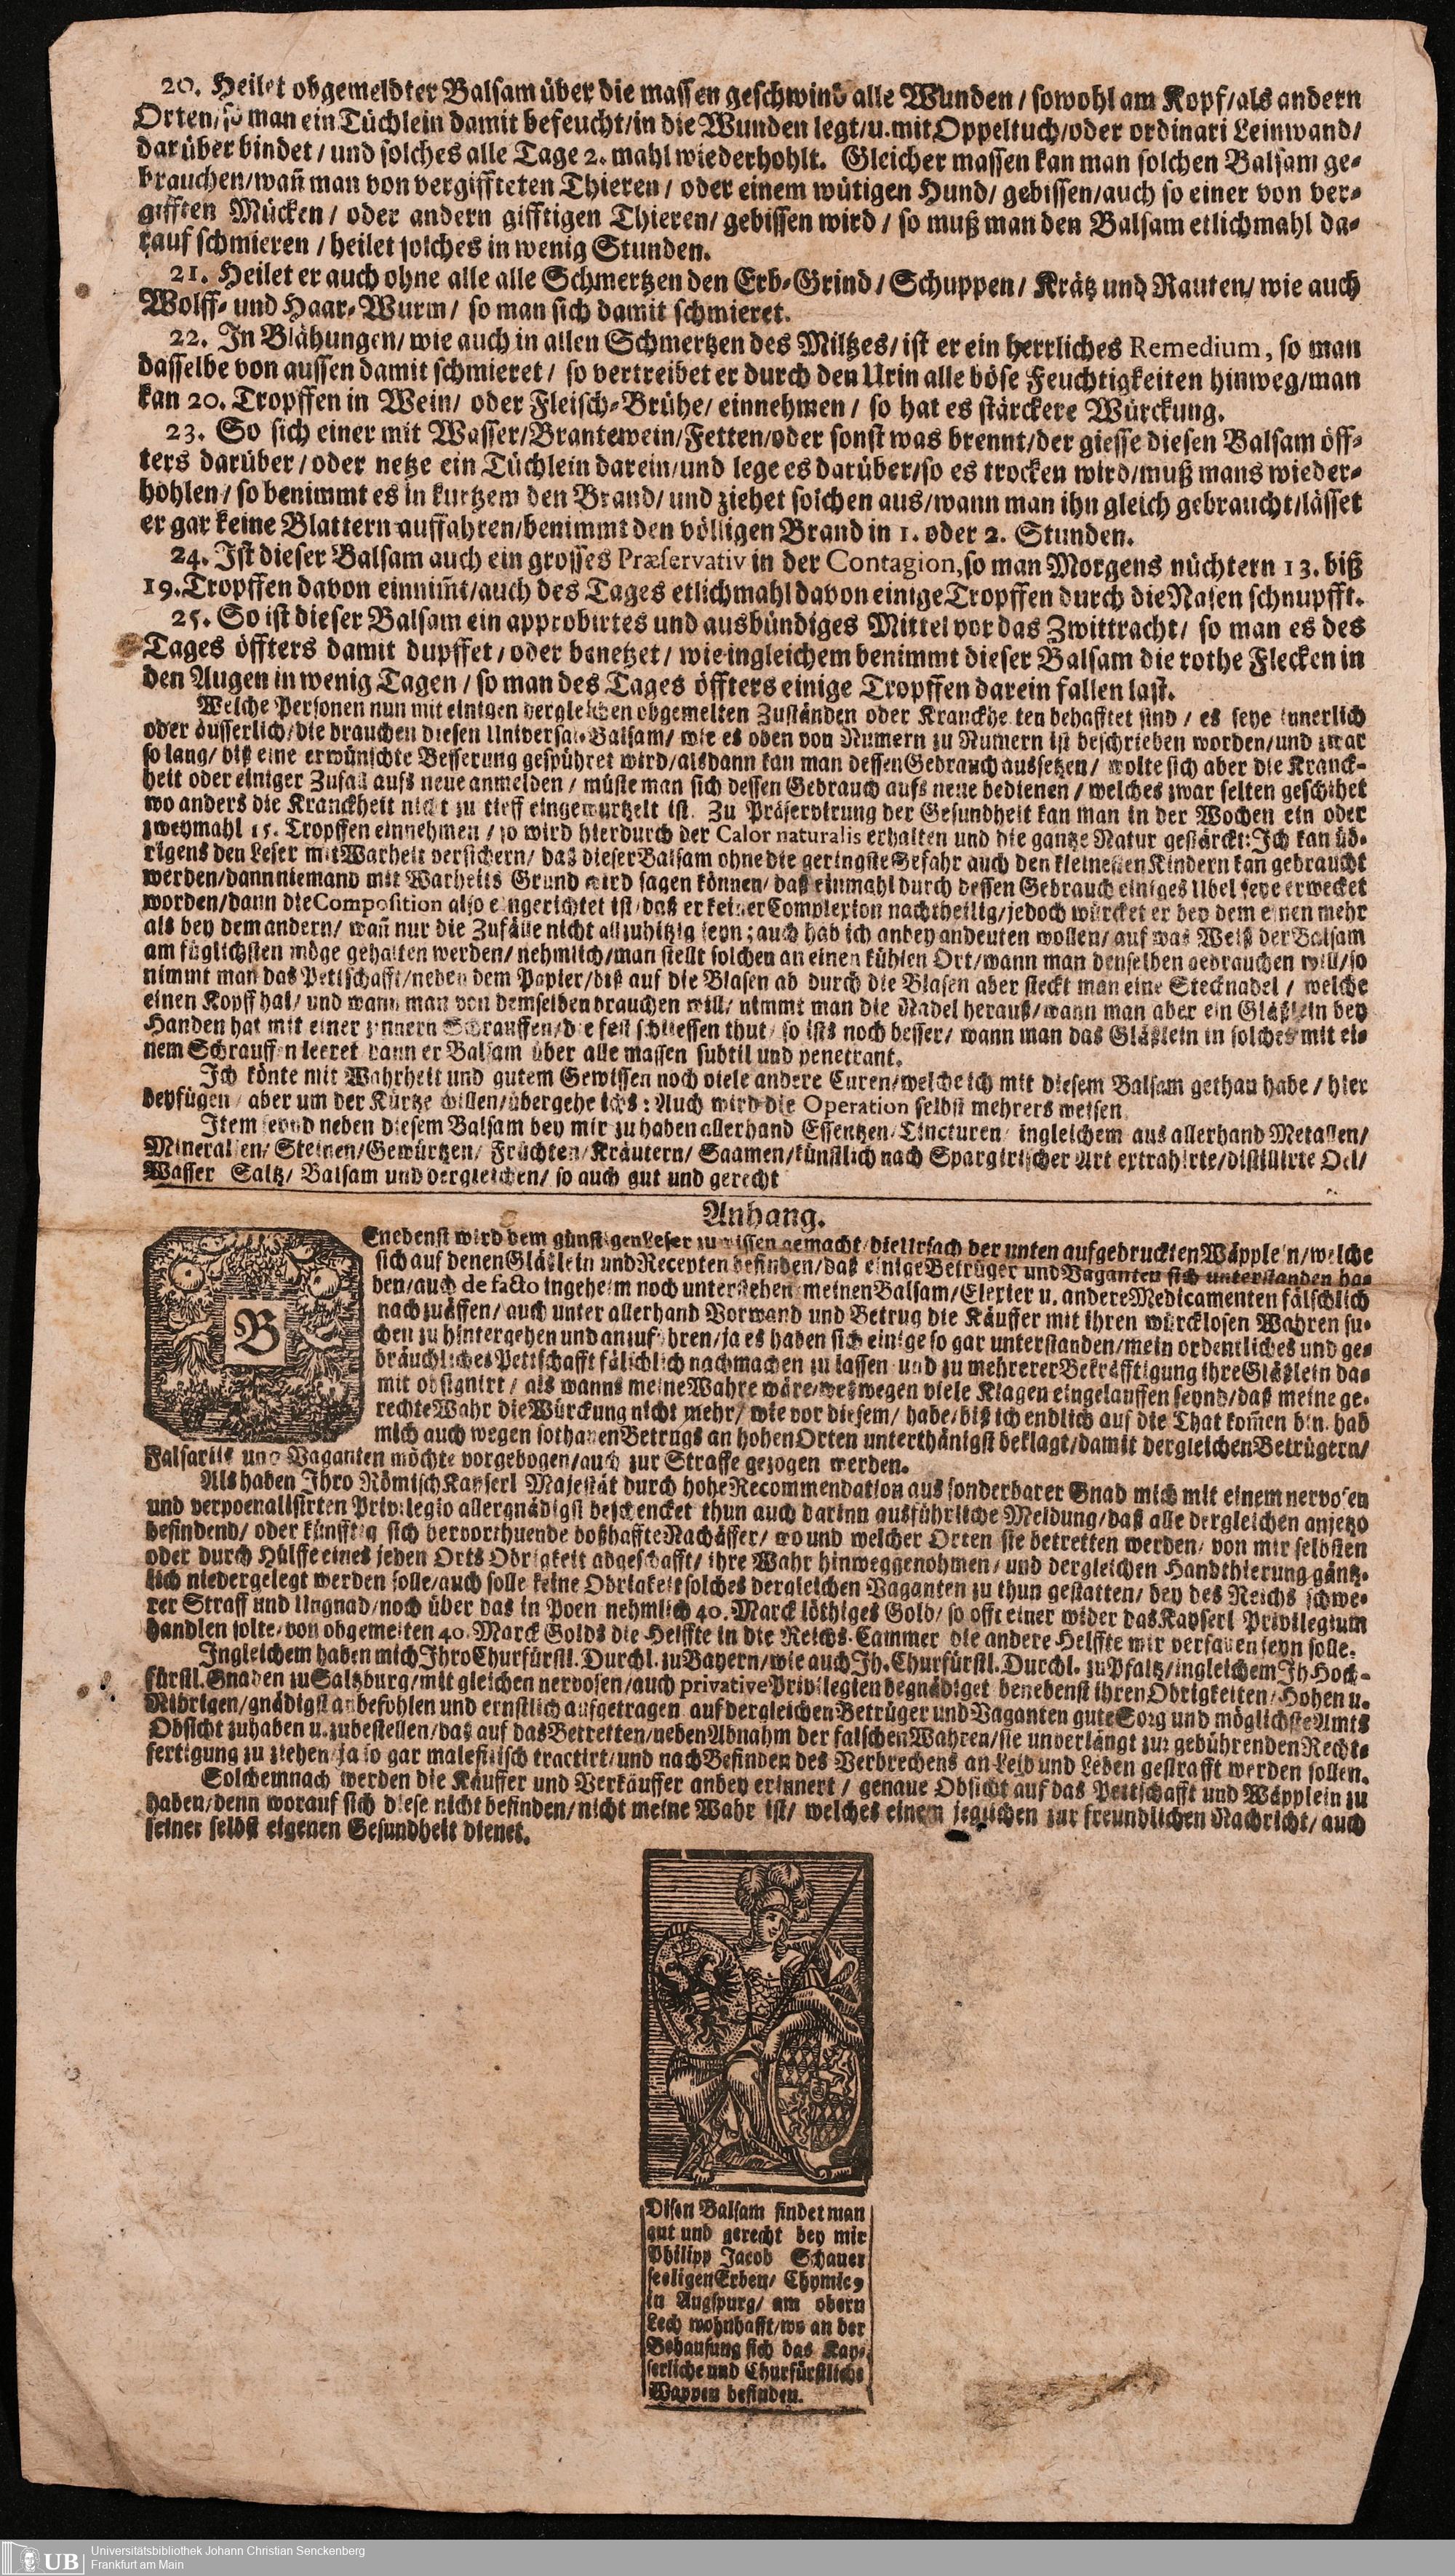 20. Heilet obgemeldter Balsam über die massen geschwind alle Wunden / sowohl am Kopf/als andern
Orten/so man ein Tüchlein damit befeucht/in die Wunden legt/u.mit Oppeltuch/oder ordinari Leinwand/
darüber bindet / und solches alle Tage 2. mahl wiederhohlt. Gleicher massen kan man solchen Balsam ge-
brauchen/wañ man von vergiffteten Thieren / oder einem wütigen Hund/ gebissen/auch so einer von ver-
gifften Mücken / oder andern gifftigen Thieren/ gebissen wird / so muß man den Balsam etlichmahl da-
rauf schmieren / heilet solches in wenig Stunden.
21. Heilet er auch ohne alle alle Schmertzen den Erb-Grind / Schuppen/ Krätz und Rauten/ wie auch
Wolff- und Haar-Wurm/ so man sich damit schmieret.
22. In Blähungen/ wie auch in allen Schmertzen des Miltzes/ ist er ein herrliches Remedium, so man
dasselbe von aussen damit schmieret / so vertreibet er durch den Urin alle böse Feuchtigkeiten hinweg/man
kan 20. Tropffen in Wein/ oder Fleisch-Brühe/ einnehmen / so hat es stärckere Würckung.
23. So sich einer mit Wasser/Brantewein/Fetten/oder sonst was brennt/der giesse diesen Balsam öff-
ters darüber / oder netze ein Tüchlein darein/und lege es darüber/so es trocken wird/muß mans wieder-
hohlen/ so benimmt es in kurtzem den Brand/ und ziehet solchen aus/wann man ihn gleich gebraucht/lässet
er gar keine Blattern auffahren/benimmt den völligen Brand in 1. oder 2. Stunden.
24. Ist dieser Balsam auch ein grosses Præservativ in der Contagion,so man Morgens nüchtern 13. biß
19.Tropffen davon einnim̃t/auch des Tages etlichmahl davon einige Tropffen durch die Nasen schnupfft.
25. So ist dieser Balsam ein approbirtes und ausbündiges Mittel vor das Zwittracht/ so man es des
Tages öffters damit dupffet / oder benetzet / wie ingleichem benimmt dieser Balsam die rothe Flecken in
den Augen in wenig Tagen / so man des Tages öffters einige Tropffen darein fallen last.
Welche Personen nun mit einigen dergleichen obgemelten Zuständen oder Kranckheiten behafftet sind / es seye innerlich
oder äusserlich/die brauchen diesen Universal-Balsam/ wie es oben von Numern zu Numern ist beschrieben worden/und zwar
so lang/ biß eine erwünschte Besserung gespühret wird/alsdann kan man dessen Gebrauch aussetzen/ wolte sich aber die Kranck-
heit oder einiger Zufall aufs neue anmelden / müste man sich dessen Gebrauch aufs neue bedienen / welches zwar selten geschihet
wo anders die Kranckheit nicht zu tieff eingewurtzelt ist. Zu Präservirung der Gesundheit kan man in der Wochen ein oder
zweymahl 15. Tropffen einnehmen / so wird hierdurch der Calor naturalis erhalten und die gantze Natur gestärckt: Ich kan üb-
rigens den Leser mit Warheit versichern/ daß dieser Balsam ohne die geringste Gefahr auch den kleinesten Kindern kan gebraucht
werden/dann niemand mit Warheits Grund wird sagen können/ daß einmahl durch dessen Gebrauch einiges Ubel seye erwecket
worden/dann die Composition also eingerichtet ist/daß er keiner Complexion nachtheilig/jedoch würcket er bey dem einen mehr
als bey dem andern/ wañ nur die Zufälle nicht allzuhitzig seyn; auch hab ich anbey andeuten wollen/ auf was Weiß der Balsam
am füglichsten möge gehalten werden/ nehmlich/man stellt solchen an einen kühlen Ort/wann man denselben gebrauchen will/so
nimmt man das Pettschafft/neben dem Papier/biß auf die Blasen ab durch die Blasen aber steckt man eine Stecknadel / welche
einen Kopff hat/ und wann man von demselben brauchen will/ nimmt man die Nadel herauß/wann man aber ein Gläßlein bey
Handen hat mit einer zinnern Schrauffen/die fest schliessen thut/ so ists noch besser/ wann man das Gläßlein in solches mit ei-
nem Schrauffen leeret dann er Balsam über alle massen subtil und penetrant.
Ich könte mit Wahrheit und gutem Gewissen noch viele andere Curen/welche ich mit diesem Balsam gethan habe / hier
beyfügen / aber um der Kürtze willen/übergehe ichs: Auch wird die Operation selbst mehrers weisen
Item seynd neben diesem Balsam bey mir zu haben allerhand Essentzen/Tincturen/ ingleichem aus allerhand Metallen/
Mineralien/ Steinen/Gewürtzen/ Früchten/Kräutern/ Saamen/künstlich nach Spargirischer Art extrahirte/distillirte Oel/
Wasser Saltz/ Balsam und dergleichen/ so auch gut und gerecht
Anhang.
BEnebenst wird dem günstigen Leser zu wissen gemacht/die Ursach der unten aufgedruckten Wäpplein/welche
sich auf denen Gläßlein und Recepten befinden/daß einige Betrüger und Vaganten sich unterstanden ha-
ben/auch de facto ingeheim noch unterstehen meinen Balsam/Elexier u. andere Medicamenten fälschlich
nachzuäffen/ auch unter allerhand Vorwand und Betrug die Käuffer mit ihren würcklosen Wahren su-
chen zu hintergehen und anzuführen/ja es haben sich einige so gar unterstanden/mein ordentliches und ge-
bräuchliches Pettschafft fälschlich nachmachen zu lassen und zu mehrerer Bekräfftigung ihre Gläßlein da-
mit obsignirt / als wanns meine Wahre wäre/weßwegen viele Klagen eingelauffen seynd/daß meine ge-
rechte Wahr die Würckung nicht mehr/ wie vor diesem/ habe/biß ich endlich auf die That kom̃en bin. hab
mich auch wegen sothanen Betrugs an hohen Orten unterthänigst beklagt/damit dergleichen Betrügern/
Falsariis und Vaganten möchte vorgebogen/auch zur Straffe gezogen werden.
Als haben Ihro Römisch Kayserl Majestät durch hohe Recommendation aus sonderbarer Gnad mich mit einem nervosen
und verpoenalisirten Privilegio allergnädigst beschencket thun auch darinn ausführliche Meldung/daß alle dergleichen anjetzo
befindend/ oder künfftig sich hervorthuende boßhaffte Nachäffer/ wo und welcher Orten sie betretten werden/ von mir selbsten
oder durch Hülffe eines jeden Orts Obrigkeit abgeschafft/ ihre Wahr hinweggenohmen/ und dergleichen Handthierung gäntz-
lich niedergelegt werden solle/auch solle keine Obrigkeit solches dergleichen Vaganten zu thun gestatten/ bey des Reichs schwe-
rer Straff und Ungnad/noch über das in Poen nehmlich 40. Marck löthiges Gold/ so offt einer wider das Kayserl Privilegium
handlen solte/von obgemelten 40. Marck Golds die Helffte in die Reichs-Cammer die andere Helffte mir verfallen seyn solle.
Ingleichem haben mich Ihro Churfürstl. Durchl. zu Bayern/wie auch Ih. Churfürstl. Durchl. zu Pfaltz/ingleichem Ih Hoch-
fürstl. Gnaden zu Saltzburg/mit gleichen nervosen/auch privative Privilegien begnädiget benebenst ihren Obrigkeiten/Hohen u.
Nidrigen/gnädigst anbefohlen und ernstlich aufgetragen auf dergleichen Betrüger und Vaganten gute Sorg und möglichste Amts
Obsicht zuhaben u. zubestellen/daß auf das Betretten/neben Abnahm der falschen Wahren/sie unverlängt zur gebührenden Recht-
fertigung zu ziehen/ja so gar malefizisch tractirt/und nach Befinden des Verbrechens an Leib und Leben gestrafft werden sollen.
Solchemnach werden die Käuffer und Verkäuffer anbey erinnert / genaue Obsicht auf das Pettschafft und Wäpplein zu
haben/denn worauf sich diese nicht befinden/nicht meine Wahr ist/ welches einem jeglichen zur freundlichen Nachricht/ auch
seiner selbst eigenen Gesundheit dienet.
Disen Balsam findet man
gut und gerecht bey mir
Philipp Jacob Schauer
seeligen Erben/ Chymic,
in Augspurg/ am obern
Lech wohnhafft/wo an der
Behausung sich das Kay-
serliche und Churfürstliche
Wappen befinden.
UB
Universitätsbibliothek Johann Christian Senckenberg
Frankfurt am Main